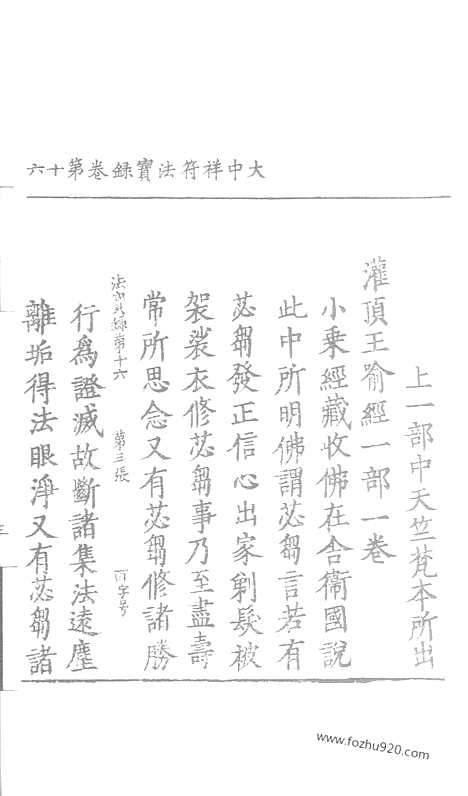 大中祥符法寶錄卷第十六
上一部中天竺梵本所出
灌頂王喻經一部一卷
小乗經藏收佛在舍衞國說
此中所明佛謂苾芻言若有
苾芻發正信心出家剃髮被
袈裟衣修苾芻事乃至盡壽
常所思念又有苾芻修諸勝
第十六 第三張
行為證滅故斷諸集法遠塵
離垢得法眼淨又有苾芻諸
www.fozhu920.com